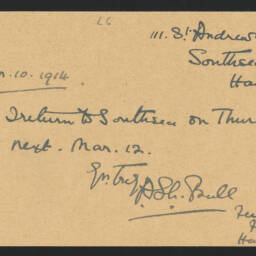 L6
111. St Andrew
Southsea
Ha
r. 10. 1914
I return to Southsea on Thur
next. Mar. 12.
Bull
Ha